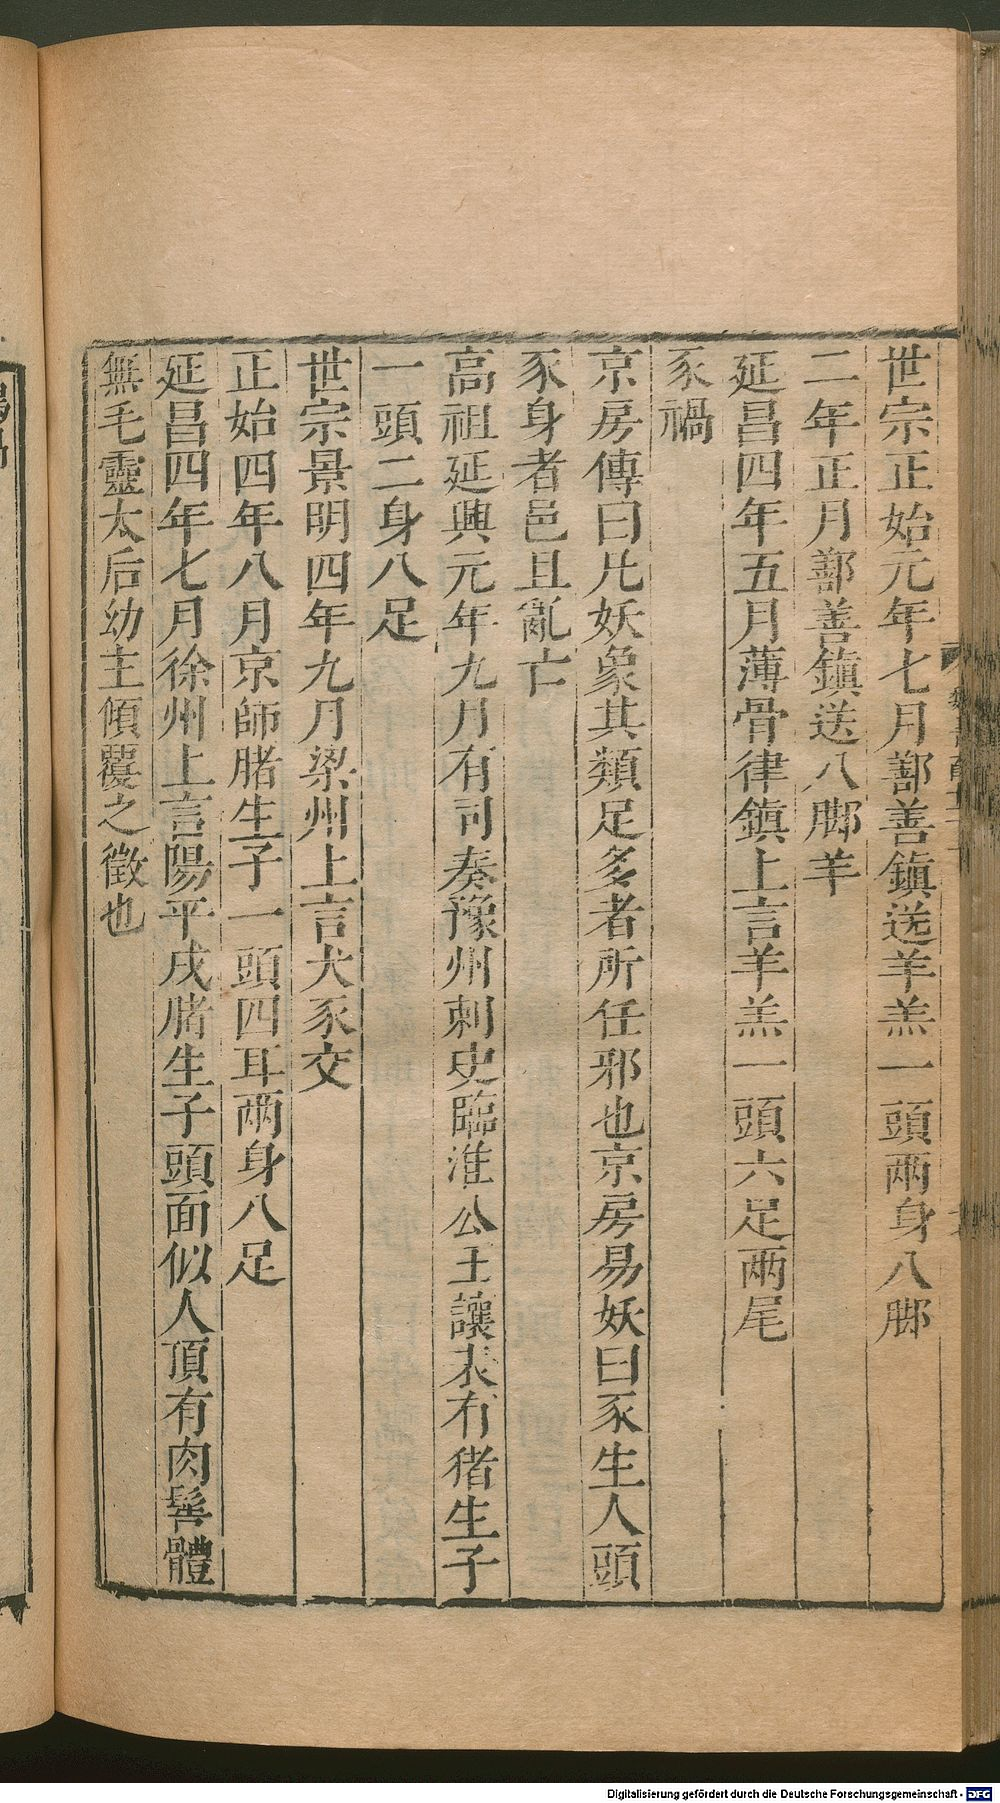 世宗正始元年七月鄯善鎮送羊羔一頭兩身八脚
二年正月鄯善鎮送八脚羊
延昌四年五月薄骨律鎮上言羊羔一頭六足兩尾
豕禍
京房傳曰凡妖象其類足多者所任邪也京房易妖曰豕生人頭
豕身者邑且亂亡
高祖延興元年九月有司奏豫州刺史臨淮公王讓表有猪生子
一頭二身八足
世宗景明四年九月梁州上言犬豕交
正始四年八月京師猪生子一頭四耳兩身八足
延昌四年七月徐州上言陽平戍猪生子頭面似人頂有肉髻體
無毛靈太后幼主傾覆之徵也
Digitalisierung gefördert durch die Deutsche Forschungsgemeinschaft - DFG